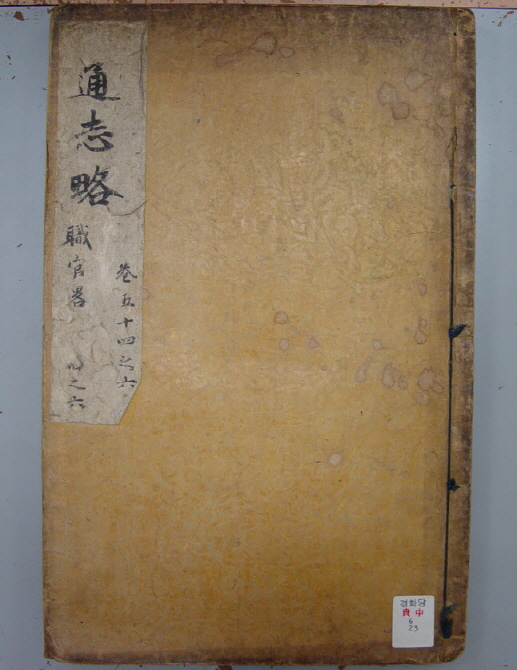 通志略
卷五十四之六
職官畧 四之六
경화당
貴中
6
23